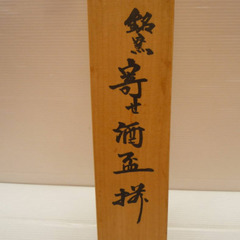 銘窯
寄せ酒盃揃